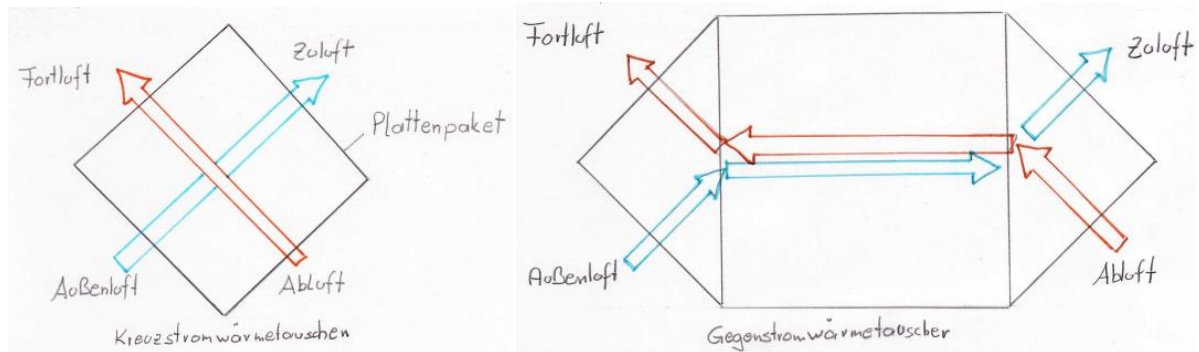 Fortluft
Zuluft
Plattenpaket
Außenluft
Abluft
Kreuzstromwärmetauschen
Fortluft
Zuluft
Außenluft
Abluft
Gegenstromwärmetauscher